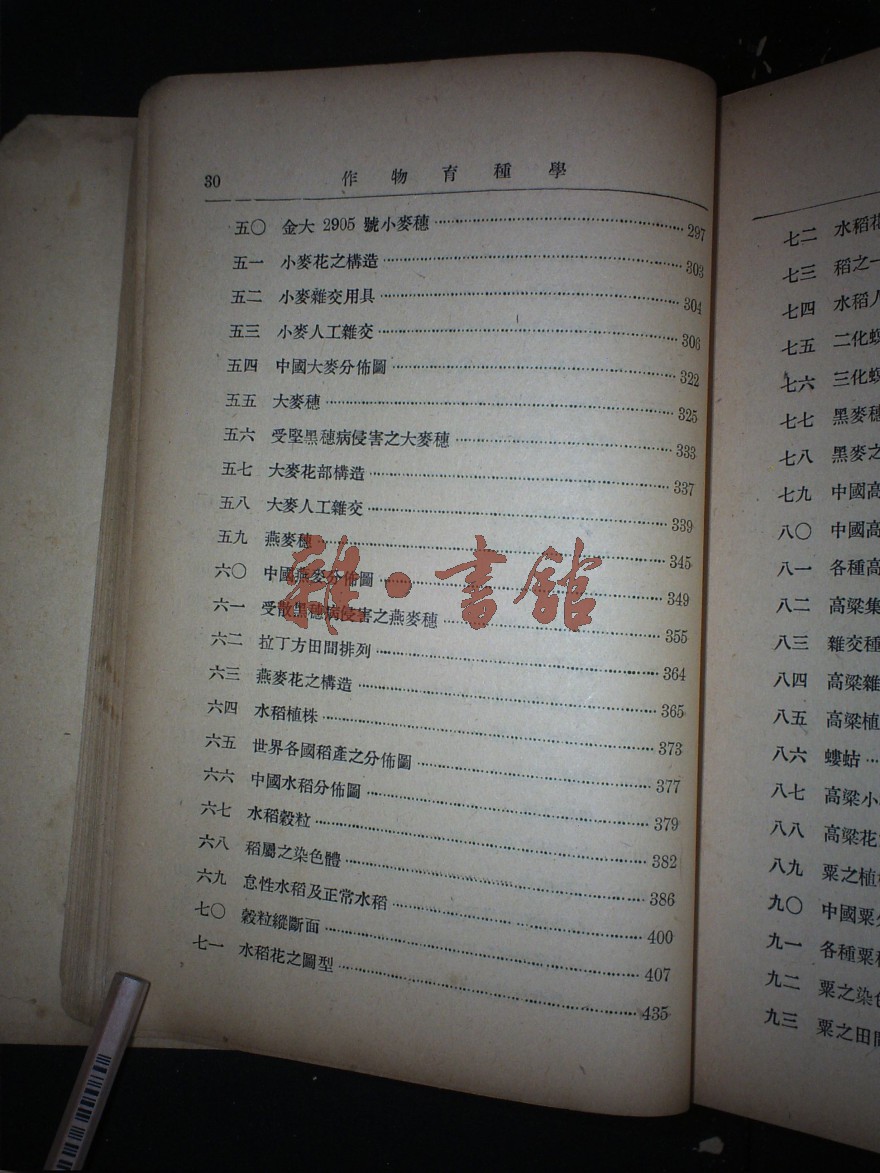 30 作物育種學
五〇 金大 2905 號小麥穗 297
五一 小麥花之構造 303
五二 小麥雜交用具 304
五三 小麥人工雜交 306
五四 中國大麥分佈圖 322
五五 大麥穗 325
五六 受堅黑穗病侵害之大麥穗 333
五七 大麥花部構造 337
五八 大麥人工雜交 339
五九 燕麥穗 345
六〇 中國燕麥分佈圖 349
六一 受散黑穗病侵害之燕麥穗 355
六二 拉丁方田間排列 364
六三 燕麥花之構造 365
六四 水稻植株 373
六五 世界各國稻產之分佈圖 377
六六 中國水稻分佈圖 379
六七 水稻穀粒 382
六八 稻屬之染色體 386
六九 怠性水稻及正常水稻 400
七〇 穀粒縱斷面 407
七一 水稻花之圖型 435
雜·書館
七二 水稻花
七三 稻之一
七四 水稻人
七五 二化螟
七六 三化螟
七七 黑麥穗
七八 黑麥之
七九 中國高
八〇 中國高
八一 各種高
八二 高粱集
八三 雜交種
八四 高粱雜
八五 高粱植
八六 螻蛄
八七 高粱小
八八 高粱花
八九 粟之植
九〇 中國粟
九一 各種粟
九二 粟之染色
九三 粟之田間